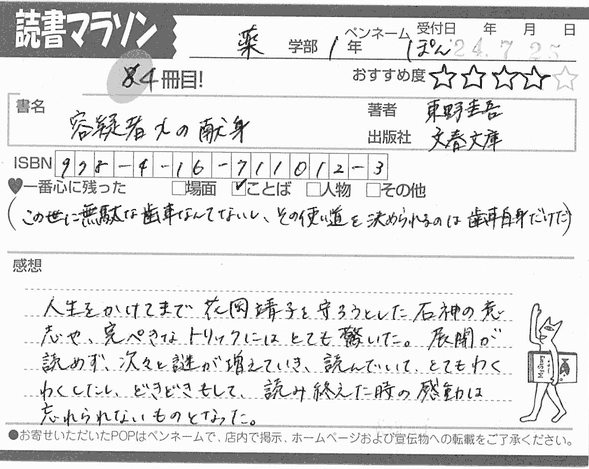 読書マラソン
薬 学部 1年 ペンネーム 1ぽん 受付日 年 月 日
'24.7.25
4冊目! おすすめ度 ★★★★☆
書名 容疑者Xの献身 著者 東野圭吾
出版社 文春文庫
ISBN 978-4-16-711012-3
♥一番心に残った □場面 ☑ことば □人物 □その他
(この世に無駄な歯車なんてないし、その使い道を決められるのは歯車自身だけだ)
感想
人生をかけてまで花岡靖子を守ろうとした石神の意
志や、完ぺきなトリックにはとても驚いた。展開が
読めず、次々と謎が増えていき、読んでいて、とてもわく
わくしたし、どきどきもして、読み終えた時の感動は
忘れられないものとなった。
●お寄せいただいたPOPはペンネームで、店内で掲示、ホームページおよび宣伝物への転載をご了承ください。